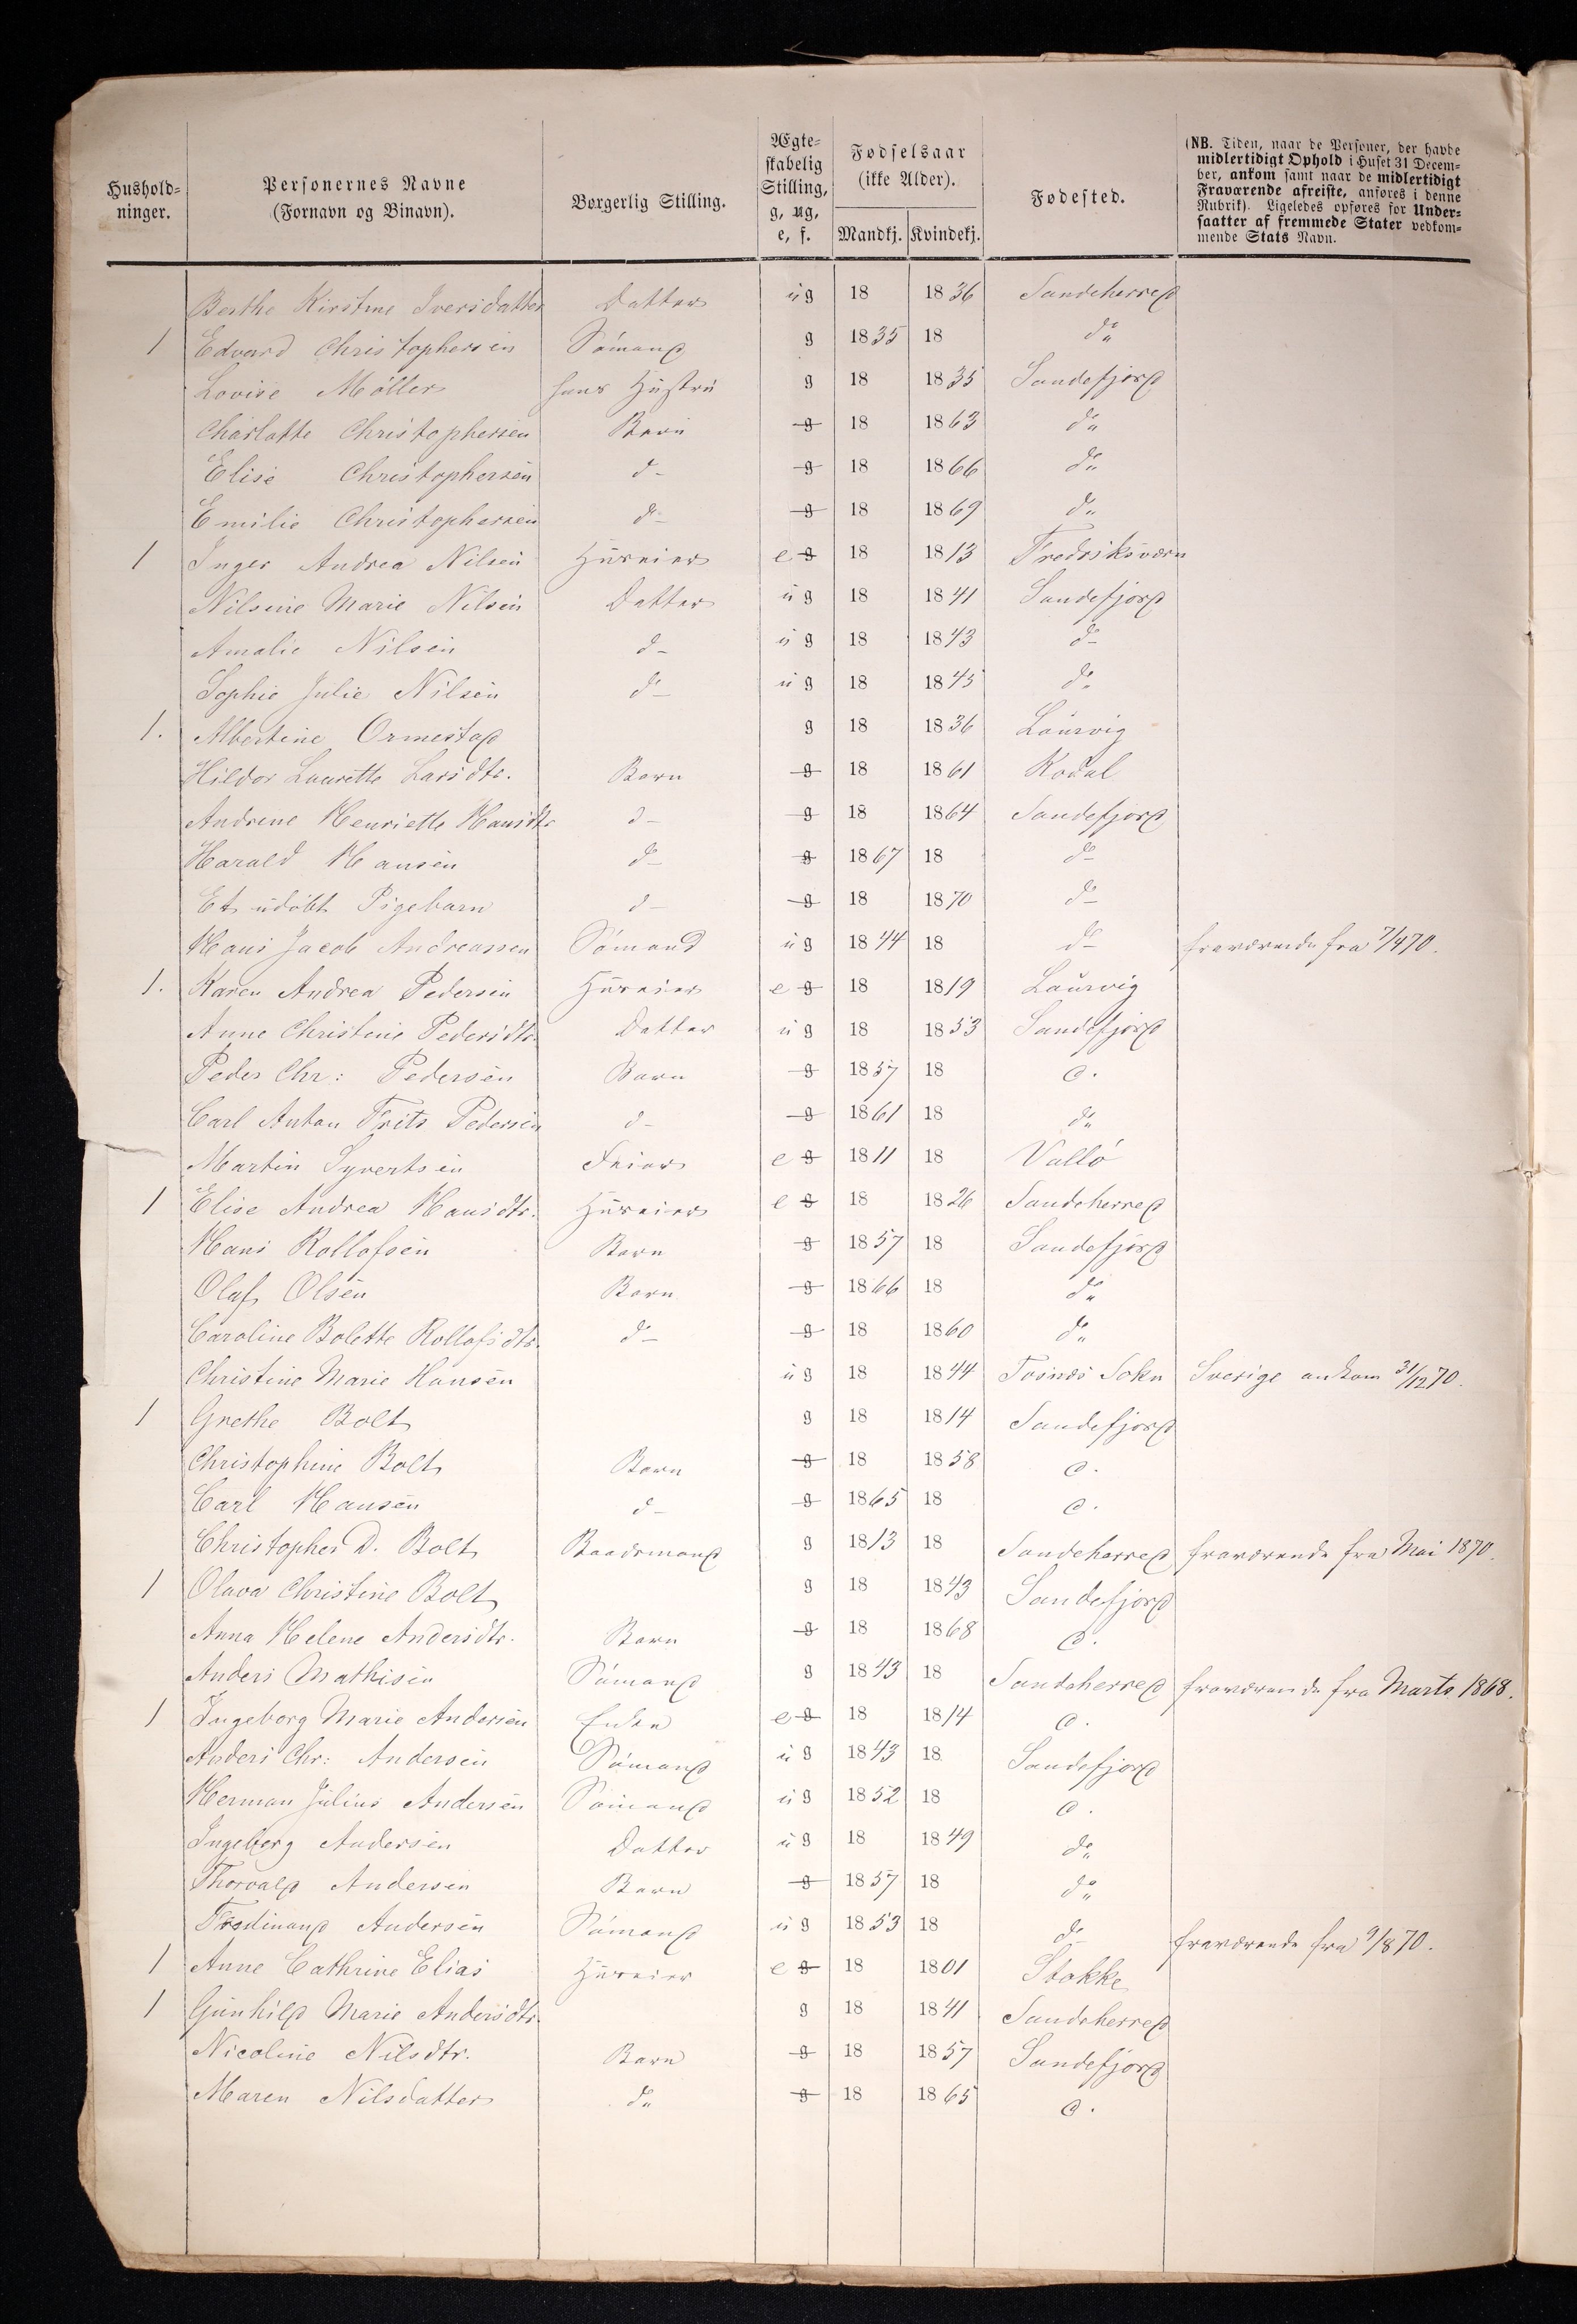 Hushold-
ninger.
Personernes Navne
(Fornavn og Binavn).
Borgerlig Stilling.
Ægte-
skabelig
Stilling,
g, ug,
e, f.
Fødselsaar
(ikke Alder).
Mandkj. Kvindekj.
Fødested.
(NB. Tiden, naar de Personer, der havde
midlertidigt Ophold i Huset 31 Decem-
ber, ankom samt naar de midlertidigt
Fraværende afreiste, anføres i denne
Rubrik). Ligeledes opføres for Under-
saatter af fremmede Stater vedkom-
mende Stats Navn.
Berthe Kirstine Iversdatter Datter ug 18 1836 Sandeherred
1 Edvard Christophersen Sømand g 1835 18 do
Lovise Møller hans Hustru g 18 1835 Sandefjord
Charlotte Christophersen Barn g 18 1863 do
Elise Christophersen d- g 18 1866 do
Emilie Christophersen do- g 18 1869 do
1 Inger Andrea Nilsen Huseier e g 18 1813 Fredriksværn
Nilsine Marie Nilsen Datter ug 18 1841 Sandefjord
Amalie Nilsen d- ug 18 1843 do-
Sophie Julie Nilsen do- ug 18 1845 do
1. Albertine Ormestad g 18 1836 Laurvig
Hildor Laurette Larsdtr. Barn g 18 1861 Kodal
Andrine Henriette Hansdtr d- g 18 1864 Sandefjord
Harald Hansen do- g 1867 18 do-
Et udøbt Pigebarn d- g 18 1870 do-
Hans Jacob Andreassen Sømand ug 1844 18 do- fraværende fra 7/9 70.
1. Karen Andrea Pedersen Huseier e g 18 1819 Laurvig
Anne Christine Pedersdtr. Datter ug 18 1853 Sandefjord
Peder Chr: Pedersen Barn g 1857 18 d.
Carl Anton Frits Pedersen d- g 1861 18 do
Martin Syvertsen Feier e g 1811 18 Vallø
1 Elise Andrea Hansdtr. Huseier e g 18 1826 Sandeherred
Hans Rollofsen Barn g 1857 18 Sandefjord
Olaf Olsen Barn g 1866 18 do
Caroline Bolette Rollofsdtr. do- g 18 1860 do
Christine Marie Hansen ug 18 1844 Tosnæs Sokn Sverige ankom 31/12 70.
1 Grethe Bolt g 18 1814 Sandefjord
Christophine Bolt Barn g 18 1858 d.
Carl Hansen d- g 1865 18 d.
Christopher D. Bolt Baadsmand g 1813 18 Sandeherred fraværende fra Mai 1870.
1 Olava Christine Bolt g 18 1843 Sandefjord
Anna Helene Andersdtr. Barn g 18 1868 d.
Anders Mathisen Sømand g 1843 18 Sandeherred fraværende fra Marts 1868.
1 Ingeborg Marie Andersen Enke e g 18 1814 d.
Anders Chr: Andersen Sømand ug 1843 18 Sandefjord
Herman Julius Andersen Sømand ug 1852 18 d.
Ingeborg Andersen Datter ug 18 1849 do
Thorvald Andersen Barn g 1857 18 do
Ferdinand Andersen Sømand ug 1853 18 do fraværende fra 9/8 70.
1 Anne Cathrine Elias Huseier e g 18 1801 Stokke
1 Gunhild Marie Andersdtr. g 18 1841 Sandeherred
Nicoline Nilsdtr. Barn g 18 1857 Sandefjord
Maren Nilsdatter do g 18 1865 d.